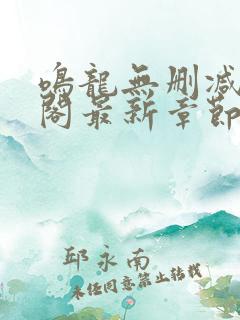 鳴龍無刪減
閣最新章節
邱永南
未经同意禁止转载